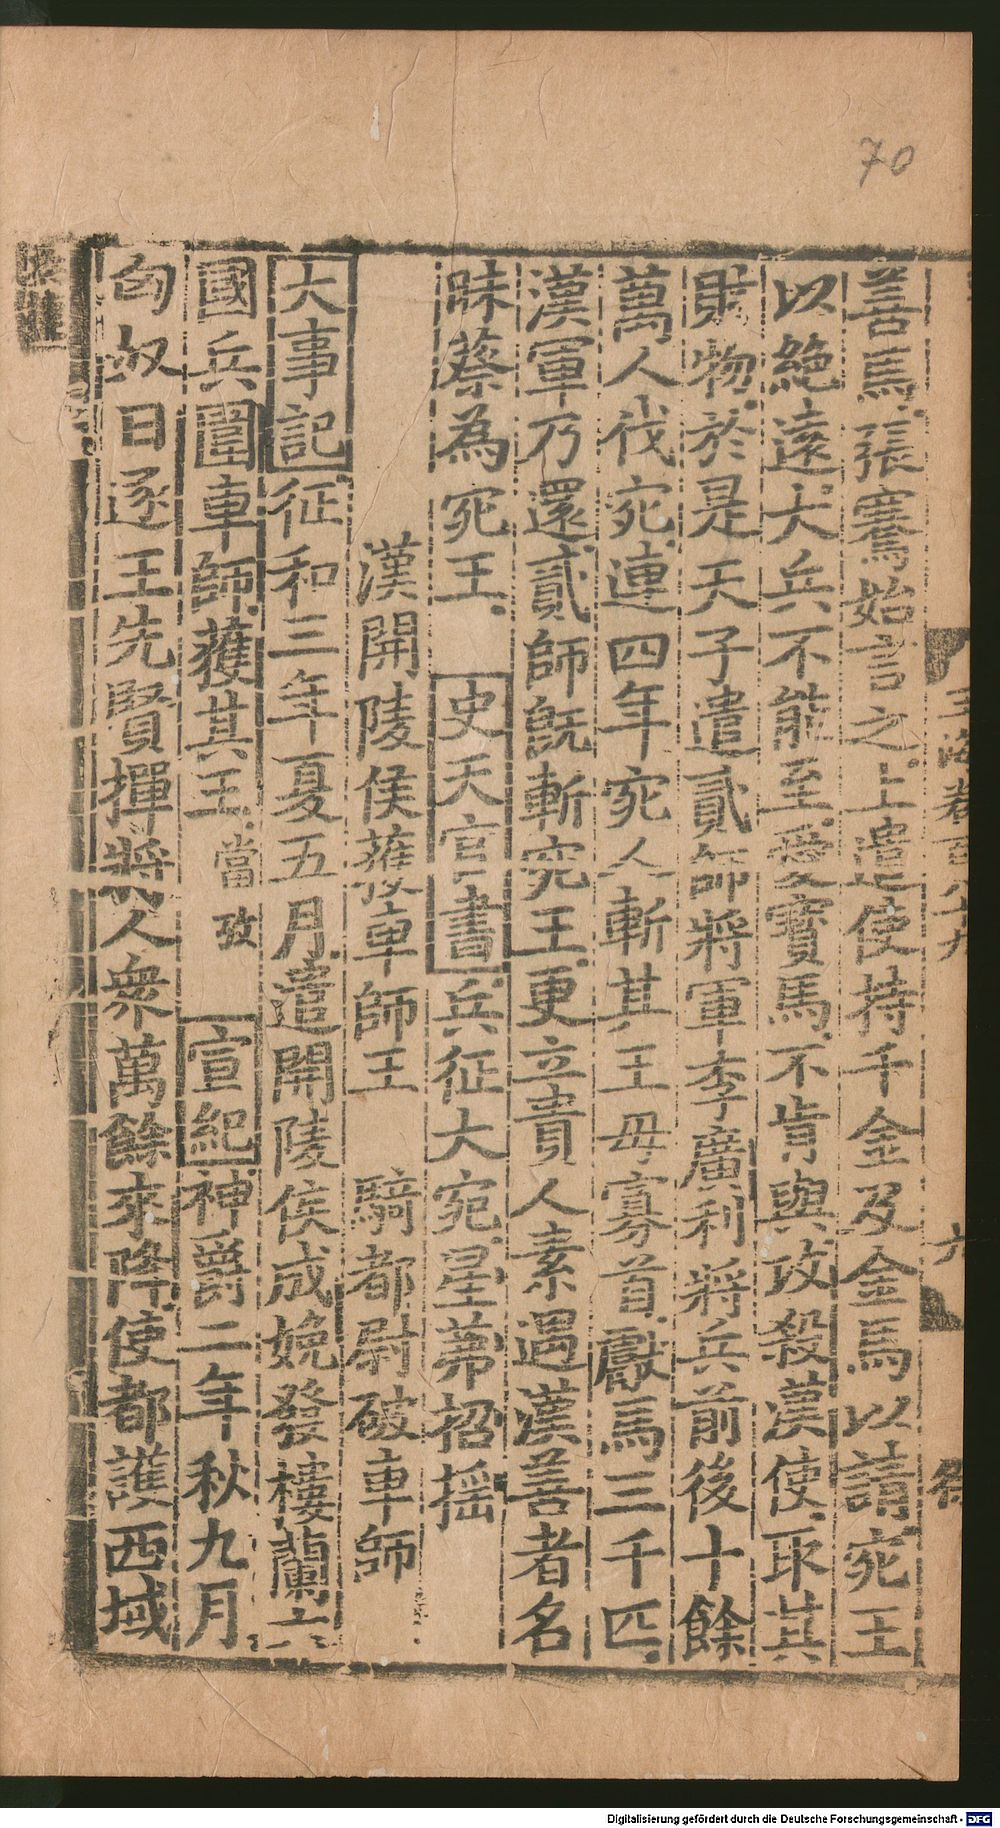 70
善馬張騫始言之上遣使持千金及金馬以請宛王
以絕遠大兵不能至愛寶馬不肯與攻殺漢使取其
財物於是天子遣貳師將軍李廣利將兵前後十餘
萬人伐宛連四年宛人斬其王毋寡首獻馬三千匹
漢軍乃還貳師旣斬宛王更立貴人素遇漢善者名
昧蔡為宛王 史天官書 兵征大宛星茀招搖
漢開陵侯獲車師王 騎都尉破車師
大事記 征和三年夏五月遣開陵侯成娩發樓蘭六
國兵圍車師獲其王當攷 宣紀 神爵二年秋九月
匈奴日逐王先賢撣將人衆萬餘來降使都護西域
Digitalisierung gefördert durch die Deutsche Forschungsgemeinschaft - DFG